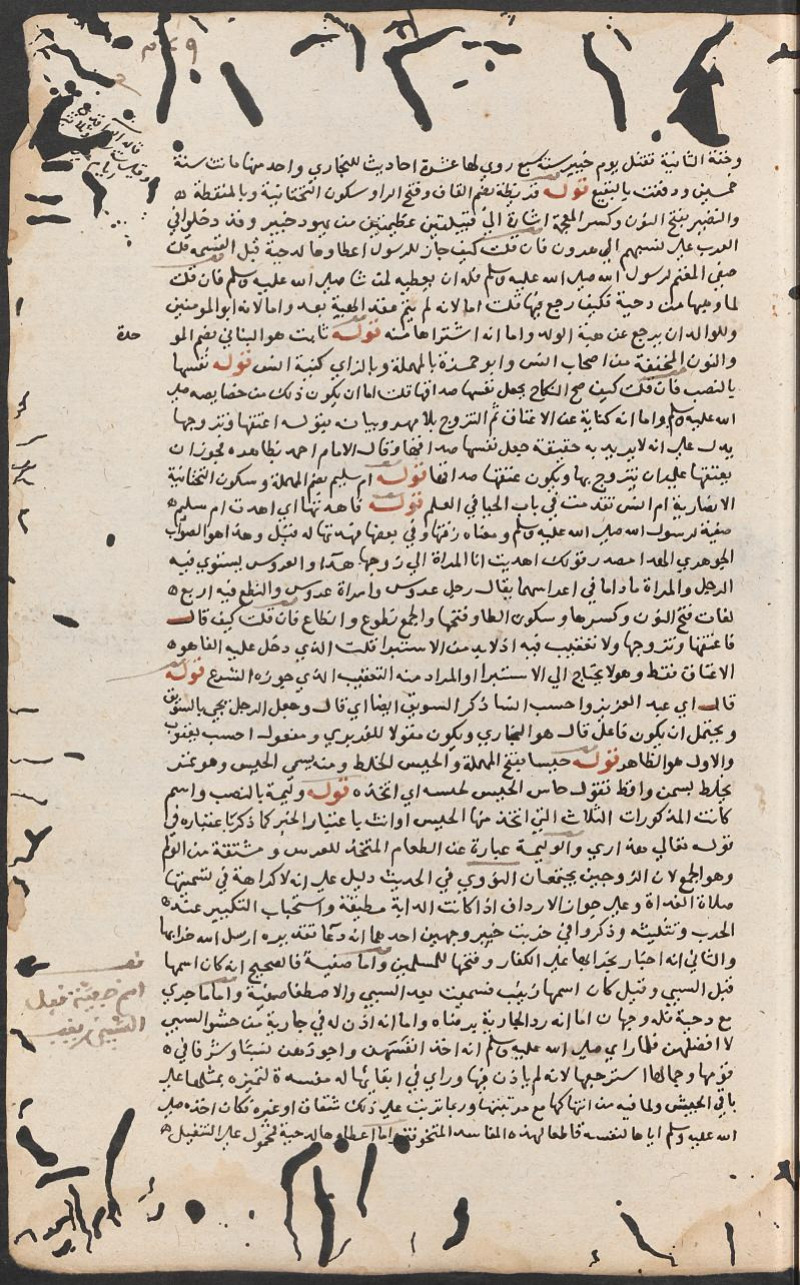 قاله
وفتة الثانية تقتل يوم خيبر سنة سبع روي لها عشرة احاديث للبخاري واحد منها ماتت سنة
خمسين ودفنت بالبقيع قوله قريظة بضم القاف وفتح الرا وسكون التحتانية وبالمنقطة
والنضير بفتح النون وكسر المعجمة اشارة الي قبيلتين عظيمتين من يهود خيبر وقد دخلوا في
العرب علي نسبهم الي هرون فان قلت كيف جاز للرسول اعطاوها لدحية قبل القسمة قلت
صفي المغنم لرسول الله صلي الله عليه وسلم فله ان يعطيه لمن شا صلي الله عليه وسلم فان قلت
لما وهبها من دحية فكيف رجع فيها قلت اما لانه لم يتم عقد الهبة بعد واما لانه ابو المومنين
وللوالد ان يرجع عن هبة الولد واما انه اشتراها منه قوله ثابت هو البناني بضم المو
حدة
والنون المخففة من اصحاب انس وابو حمزة بالمهملة وبالزاي كنية انس قوله نفسها
بالنصب فان قلت كيف صح النكاح بجعل نفسها صداقها قلت اما ان يكون ذلك من خصايصه صلي
الله عليه وسلم واما انه كناية عن الاعتاق ثم التزوج بلا مهر وبيانه بقوله اعتقها وتزوجها
يدل علي انه لا يريد به حقيقة جعل نفسها صداقها وقال الامام احمد بظاهره فجوز ان
يعتقها علي ان يتزوج بها ويكون عتقها صداقها قوله ام سليم بضم المهملة وسكون التحتانية
الانصارية ام انس تقدمت في باب الحيا في العلم قوله فاهدتها اي اهدت ام سليم
صفية لرسول الله صلي الله عليه وسلم ومعناه زفتها وفي بعضها فهدتها له قيل وهذا هو الصواب
الجوهري الهدا مصدر قولك اهديت انا المراة الي زوجها هدا والعروس يستوي فيه
الرجل والمراة ما داما في اعراسهما يقال رجل عروس وامراة عروس والنطع فيه اربع
لغات فتح النون وكسرها وسكون الطا وفتحها والجمع نطوع وانطاع فان قلت كيف قال
فاعتقها وتزوجها ولا تعقيب فيه اذ لا بد من الاستبرا قلت الذي دخل عليه الفا هو
الاعتاق فقط وهو لا يحتاج الي الاستبرا او المراد منه التعقيب الذي جوزه الشرع قوله
قال اي عبد العزيز واحسب انسا ذكر السويق ايضا اي قال وجعل الرجل يجي بالسويق
ويحتمل ان يكون فاعل قال هو البخاري ويكون مقولا للفربري ومفعول احسب يعقوب
والاول هو الظاهر قوله حيسا بفتح المهملة والحيس الخلط ومنه سمي الحيس وهو تمر
يخلط بسمن واقط تقول حاس الحيس يحيسه اي اتخذه قوله وليمة بالنصب واسم
كانت المذكورات الثلاث التي اتخذ منها الحيس او انث باعتبار الخبر كما ذكر باعتباره في
قوله تعالي هذا ربي والوليمة عبارة عن الطعام المتخذ للعرس ومشتقة من الولم
وهو الجمع لان الزوجين يجتمعان النووي في الحديث دليل علي انه لا كراهة في تسميتها
صلاة الغداة وعلي جواز الارداف اذا كانت الدابة مطيقة واستحباب التكبير عند
الحرب وتثليثه وذكروا في خربت خيبر وجهين احدهما انه دعا تقديره ارسل الله خرابها
والثاني انه اخبار بخرابها علي الكفار وفتحها للمسلمين واما صفية فالصحيح انه كان اسمها
قبل السبي وقيل كان اسمها زينب فسميت بعد السبي والاصطفا صفية واما ما جري
مع دحية فله وجهان اما انه رد الجارية برضاه واما انه اذن له في جارية من حشو السبي
لا افضلهن فلما راي صلي الله عليه وسلم انه اخذ انفسهن واجودهن نسبا وشرفا في
قومها وجمالها استرجعها لانه لم ياذن فيها وراي في ابقايها له مفسدة لتميزه بمثلها علي
باقي الجيش ولما فيه من انتهاكها مع مرتبتها وربما ترتب علي ذلك شقاق او غيره فكان اخذه صلي
الله عليه وسلم اياها لنفسه قاطعا لهذه المفاسد المتخوفة واما اعطاوها لدحية فمحمول علي التنفيل